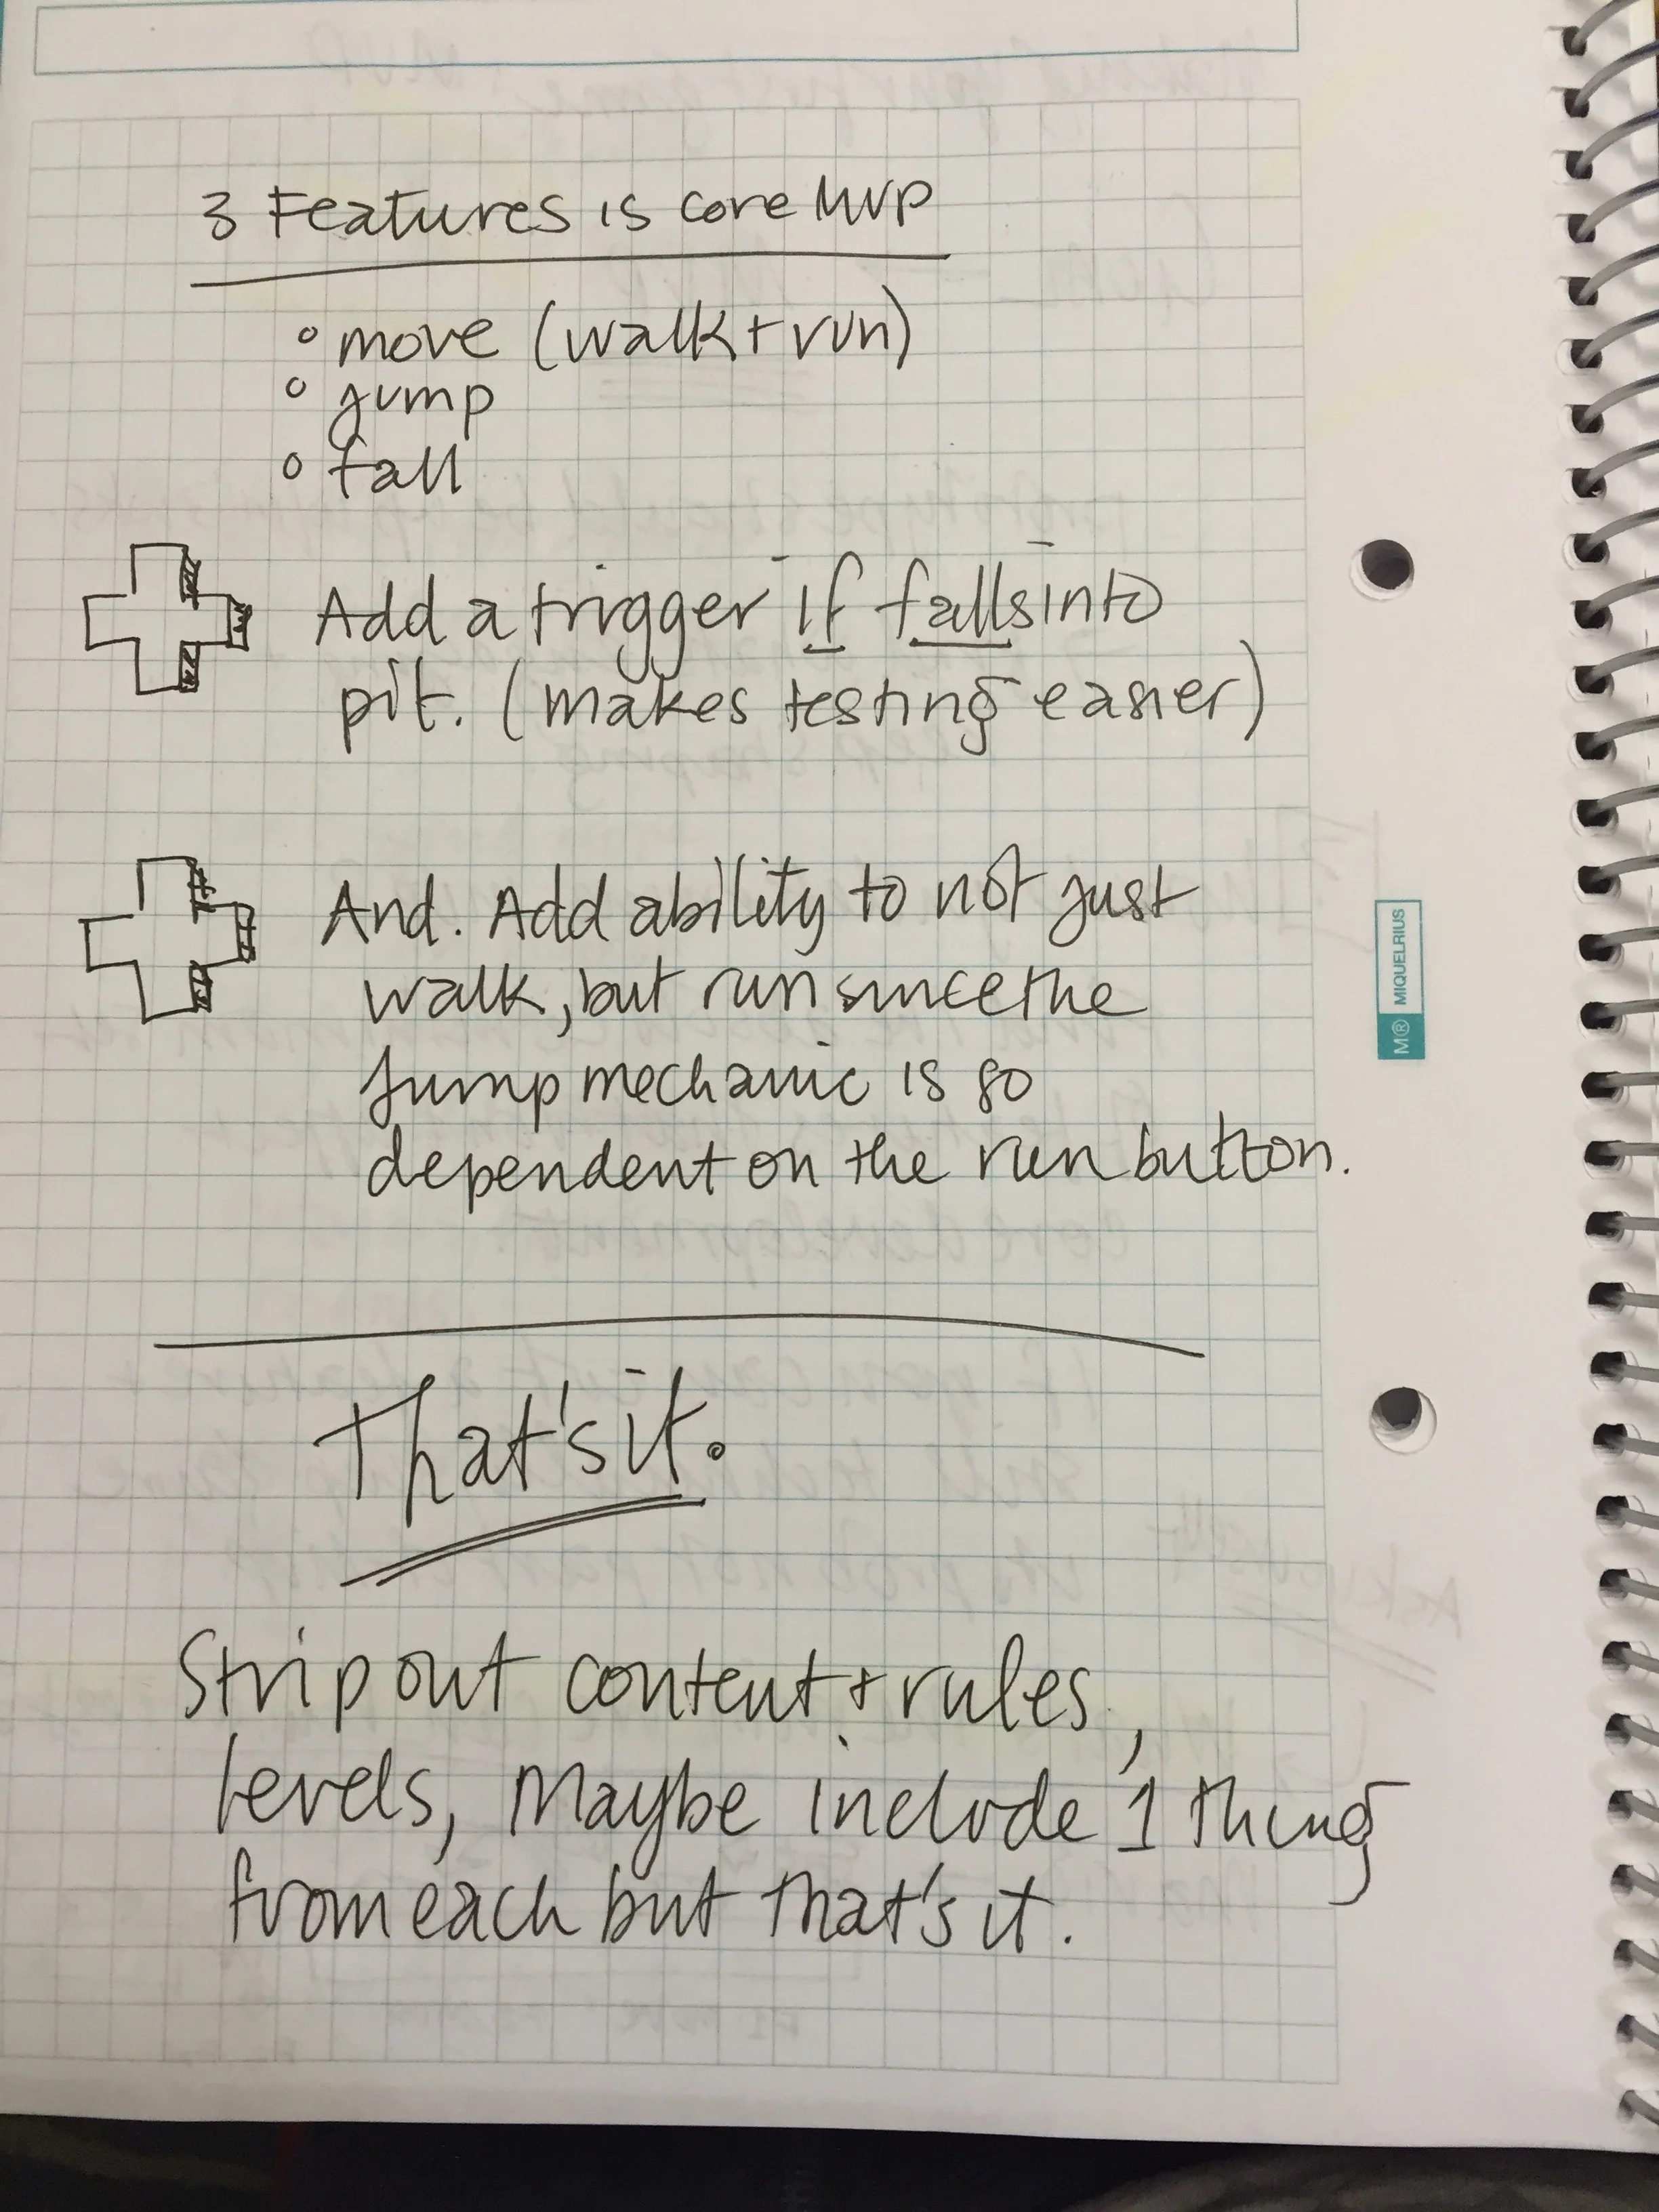 3 Features is core MVP
° move (walk + run)
° jump
° fall
Add a trigger if falls into
pit. (makes testing easier)
And. Add ability to not just
walk, but run since the
jump mechanic is so
dependent on the run button.
That's it.
Strip out content + rules,
levels, Maybe include 1 thing
from each but that's it.
M® MIQUELRIUS